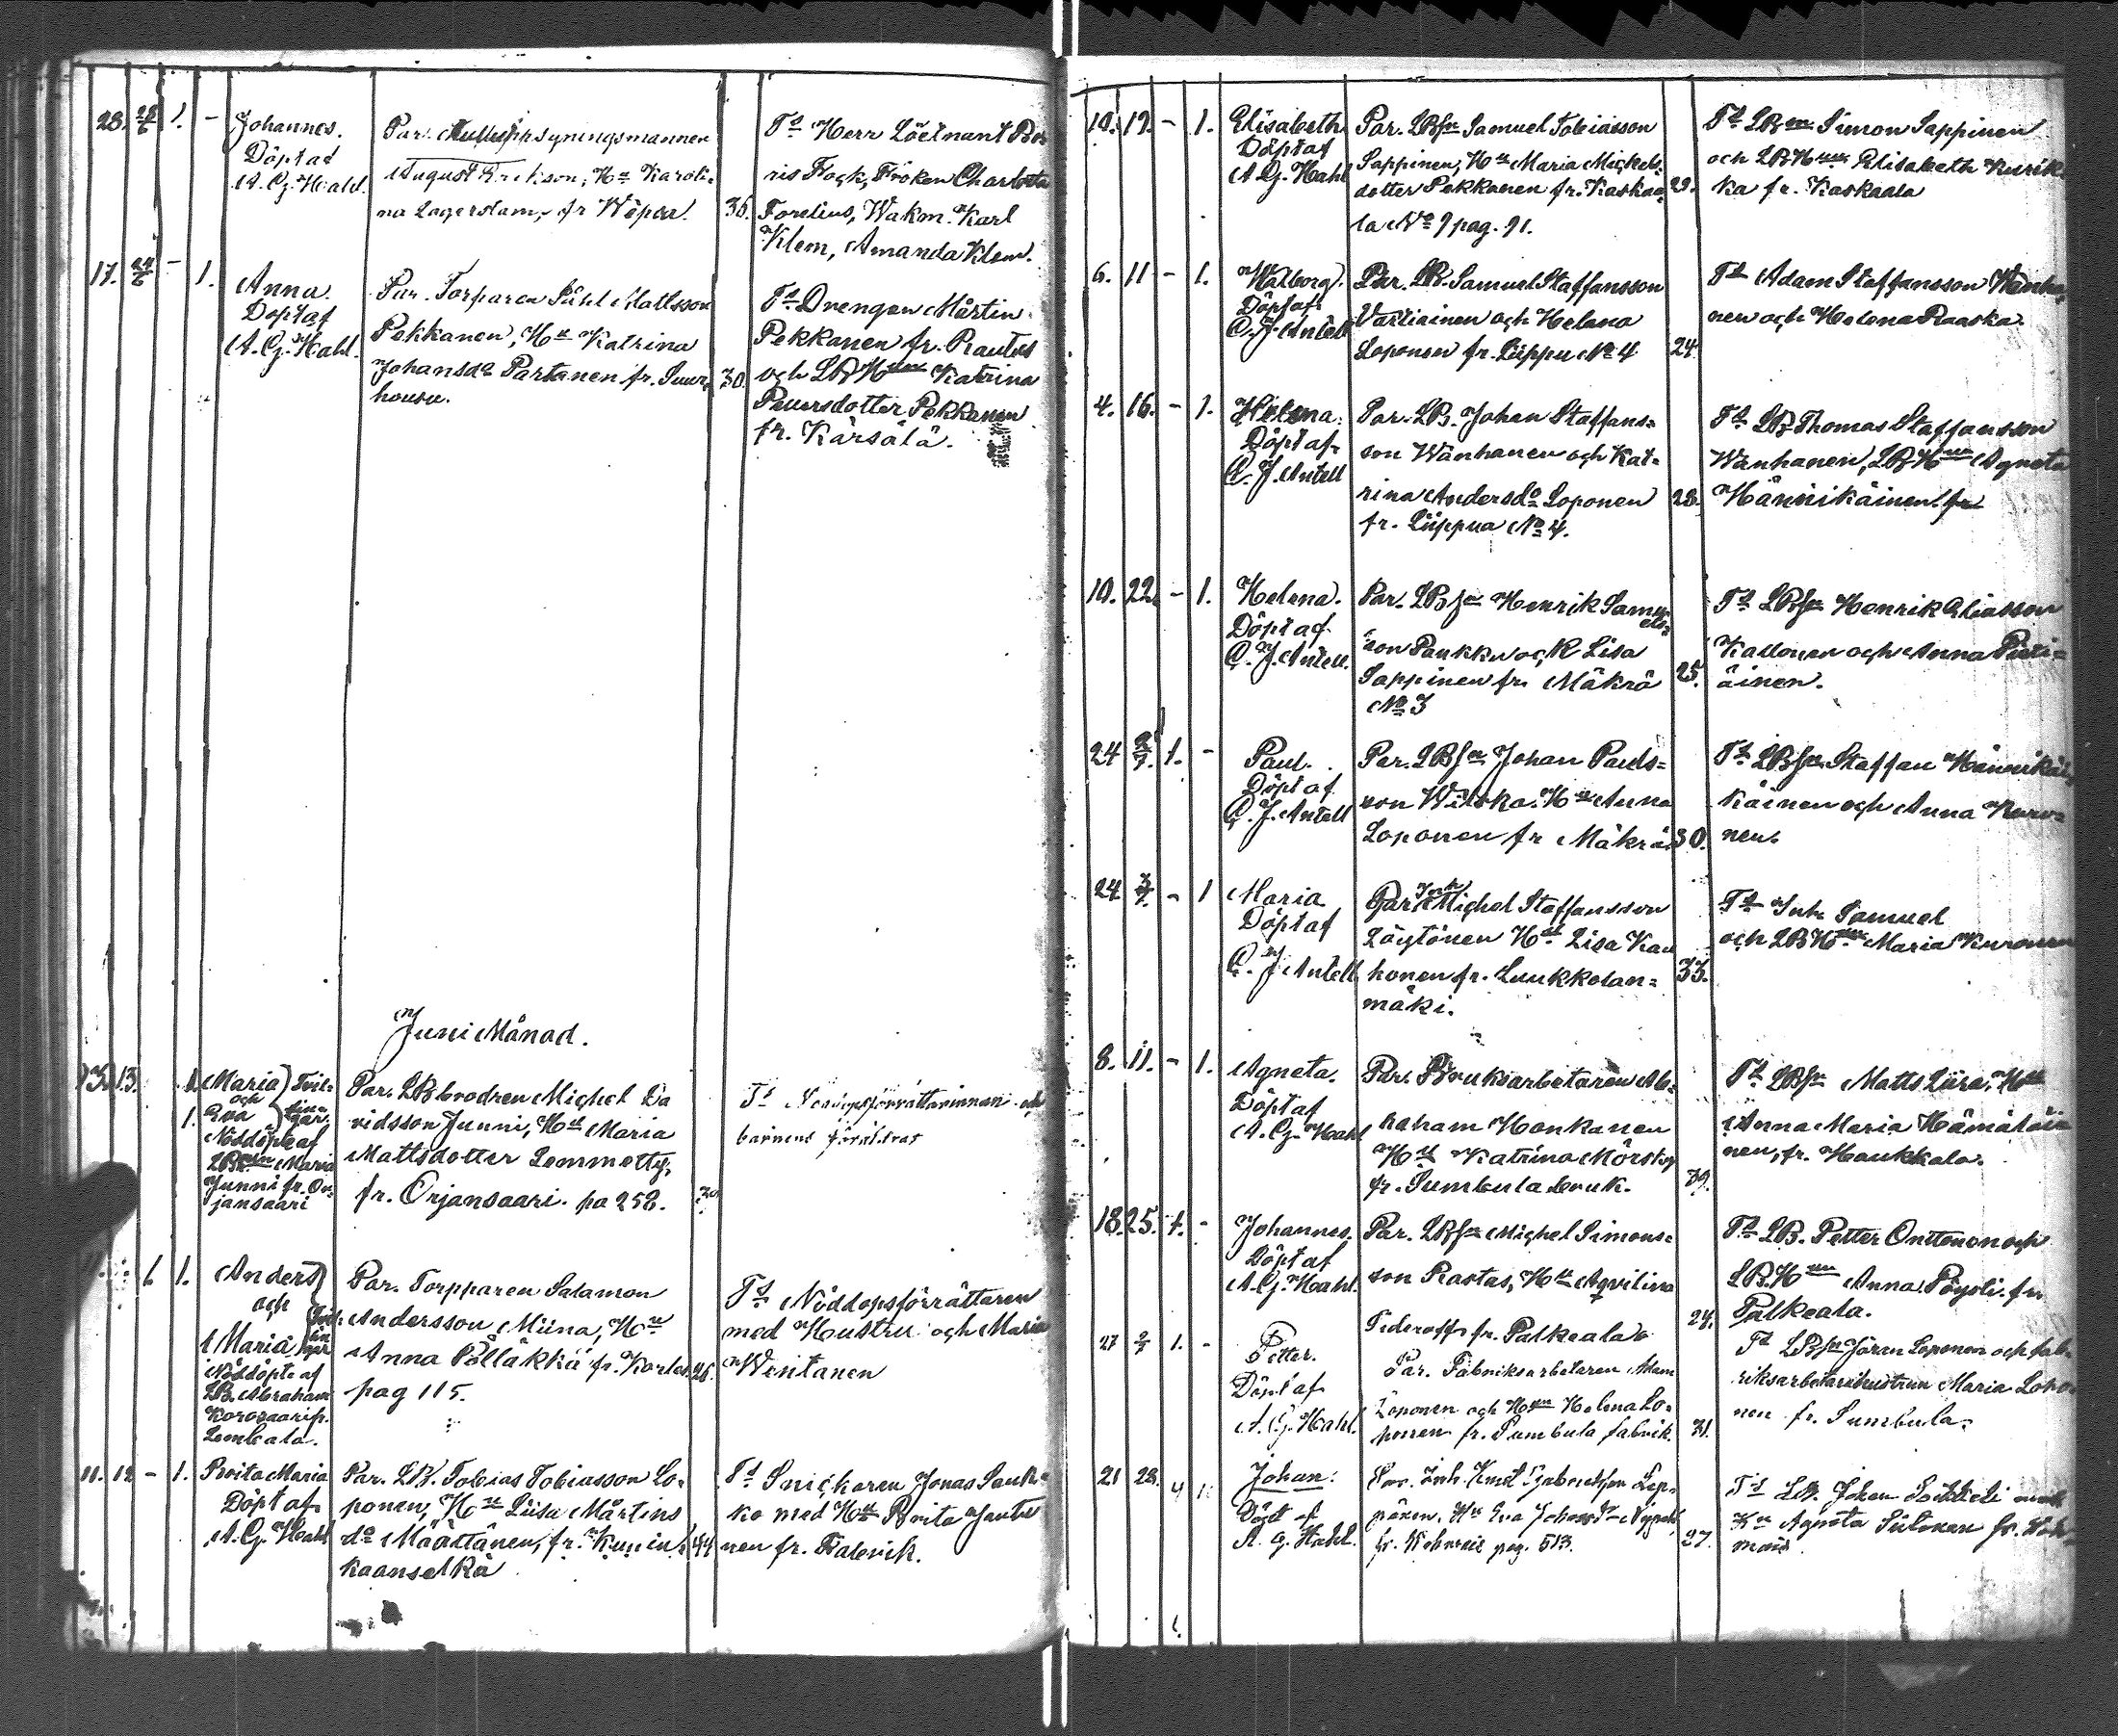 28. 28/6 1. -
Johannes.
Döpt af
A. G. Hahl.
Par.
August Erikson, Hu Karoli=
na Lagerstam, fr Wepsa.
36.
Ts Herr Löitnant Bo=
ris Flock, Fröken Charlotta
Forelius, Wakm. Karl
Klem, Amanda Klem.
17. 24/6 - 1.
Anna.
Döpt af
A. G. Hahl.
Par. Torparen Påhl Mattsson
Pekkanen, Hu Katrina
Johansdr Partanen fr. Suur=
housu.
30.
Ts Drengen Mårtin
Pekkanen fr. Rautus
och LBHustrun Katrina
Pettersdotter Pekkanen
fr. Kärsälä.
Juni Månad.
13. 13. 1.
1.
Maria
och
Eva
Tvil=
lin=
gar.
Nöddöpte af
Maria
Junni fr. Or=
jansaari
Par. LBbrodren Michel Da
vidsson Junni, Hu Maria
Mattsdotter Lemmetty,
fr. Orjansaari. pa 258.
Ts Nöddopsförrättarinnan och
barnens föräldrar
1. 1.
Anders
och
Maria
Nöddöpte af
LB. Abraham
Korosaari fr.
Lembala.
Par. Torpparen Salamon
Andersson Miina, Hu
Anna Pölläkkä fr. Korles.
pag 115.
26.
Ts Nöddopsförrättaren
med Hustru och Maria
Wesitanen
11. 12 - 1.
Brita Maria
Döpt af
A. G. Hahl
Par. LB. Tobias Tobiasson Lo=
ponen, Hu Liisa Mårtins
dr Määttänen, fr. Kunin=
kaanselkä
44
Ts Snickaren Jonas Sauk=
ko med Hu Brita Jantu
nen fr. Fabrik.
10. 19. - 1.
Elisabeth
Döpt af
A. G. Hahl
Par. LBsn Samuel Tobiasson
Sappinen, Hu Maria Michels=
dotter Pekkanen fr. Kaskaa=
la No 9 pag. 91.
29.
Ts LBn Simon Sappinen
och LBHustrun Elisabeth Kurik=
ka fr. Kaskaala
6. 11 - 1.
Walborg.
Döpt af
C. J. Antell
Par. LB. Samuel Staffansson
Vartiainen och Helena
Loponen fr. Liippu No 4
24.
Ts Adam Staffansson Wänha
nen och Helena Raaska.
4. 16. - 1.
Helena.
Döpt af
C. J. Antell
Par. LB. Johan Staffans=
son Wänhanen och Kat=
rina Andersdr Loponen
fr. Liippua No 4.
28.
Ts LB Thomas Staffansson
Wänhanen, LBHustrun Agneta
Männikäinen. fr
10. 22. - 1.
Helena.
Döpt af
C. J. Antell.
Par. LBsn Henrik Samu
els=
son Paukku och Lisa
Sappinen fr. Mäkrä
No 3
25.
Ts LBsn Henrik Eliasson
Kallonen och Anna Pieti=
äinen.
24 2/7. 1. -
Paul.
Döpt af
C. J. Antell
Par. LBsn Johan Pauls=
son Wilska. Hu Anna
Loponen fr Mäkrä
30.
Ts LBsn Staffan Männikäi
käinen och Anna Kuro=
nen.
24. 3/7. - 1
Maria
Döpt af
C. J. Antell
Par. Inh Michel Staffansson
Löytönen Hu Lisa Kau
honen fr. Luukkolan=
mäki.
33.
Ts Inh. Samuel
och LBHustrun Maria Kuronen
8. 11. - 1.
Agneta.
Döpt af
A. G. Hahl
Par. Bruksarbetaren Ab=
raham Honkanen
Hu Katrina Mörsky
fr. Sumbula bruk.
39.
Ts LBsn Matts Liira, Hu
Anna Maria Hämäläi
nen, fr. Haukkala.
18. 25. 1. -
Johannes.
Döpt af
A. G. Hahl.
Par. LBsn Michel Simons=
son Rastas, Hu Aqvilina
Fideroff fr. Palkeala
24.
Ts LB. Petter Onttonen och
LBHustrun Anna Pöysti. fr
Palkeala.
27 2/7 1. -
Petter.
Döpt af
A. G. Hahl.
Par. Fabriksarbetaren Adam
Loponen och Hustrun Helena Lo=
ponen fr. Sumbula fabrik.
31.
Ts LBsn Göran Loponen och fab=
riksarbetarehustrun Maria Lopo
nen fr. Sumbula.
21 28.
Johan.
Döpt af
A. G. Hahl.
pänen, Hu Eva
pag. 513.
27.
Ts LB. Johan
Hu Agneta